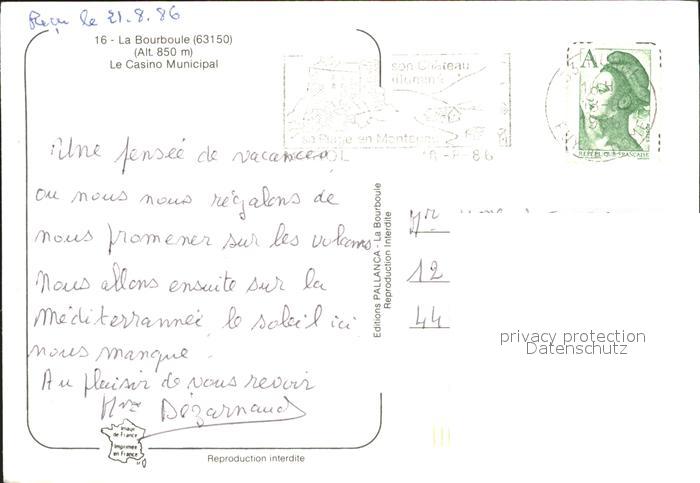 Reçu le 21.8.86
16 - La Bourboule (63150)
(Alt. 850 m)
Le Casino Municipal
son Château
sa Plage en Montagne
A
REPUBLIQUE FRANÇAISE
Une pensée de vacances
ou nous nous régalons de
nous promener sur les volcans
Nous allons ensuite sur la
Méditerrannée, le soleil ici
nous manque.
Au plaisir de vous revoir
Mme Dézarnauds
Editions PALLANCA - La Bourboule
Reproduction Interdite
Mr
12
44
privacy protection
Datenschutz
Image
de France
Imprimée
en France
Reproduction interdite